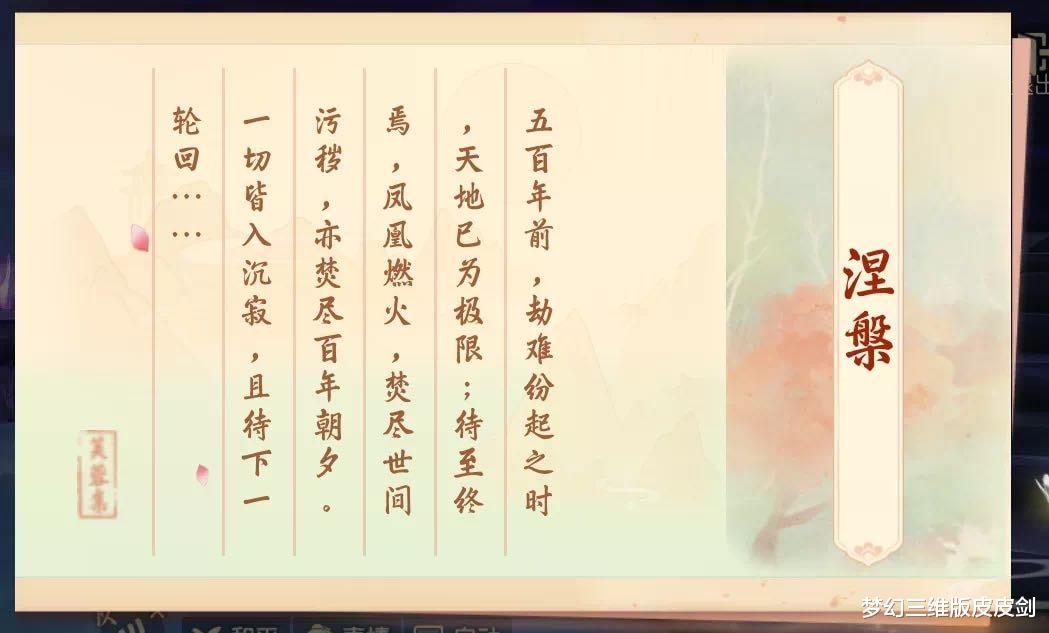 涅槃
五百年前，劫难纷起之时
，天地已为极限；待至终
焉，凤凰燃火，焚尽世间
污秽，亦焚尽百年朝夕。
一切皆入沉寂，且待下一
轮回……
芙蓉集
退出
梦幻三维版皮皮剑